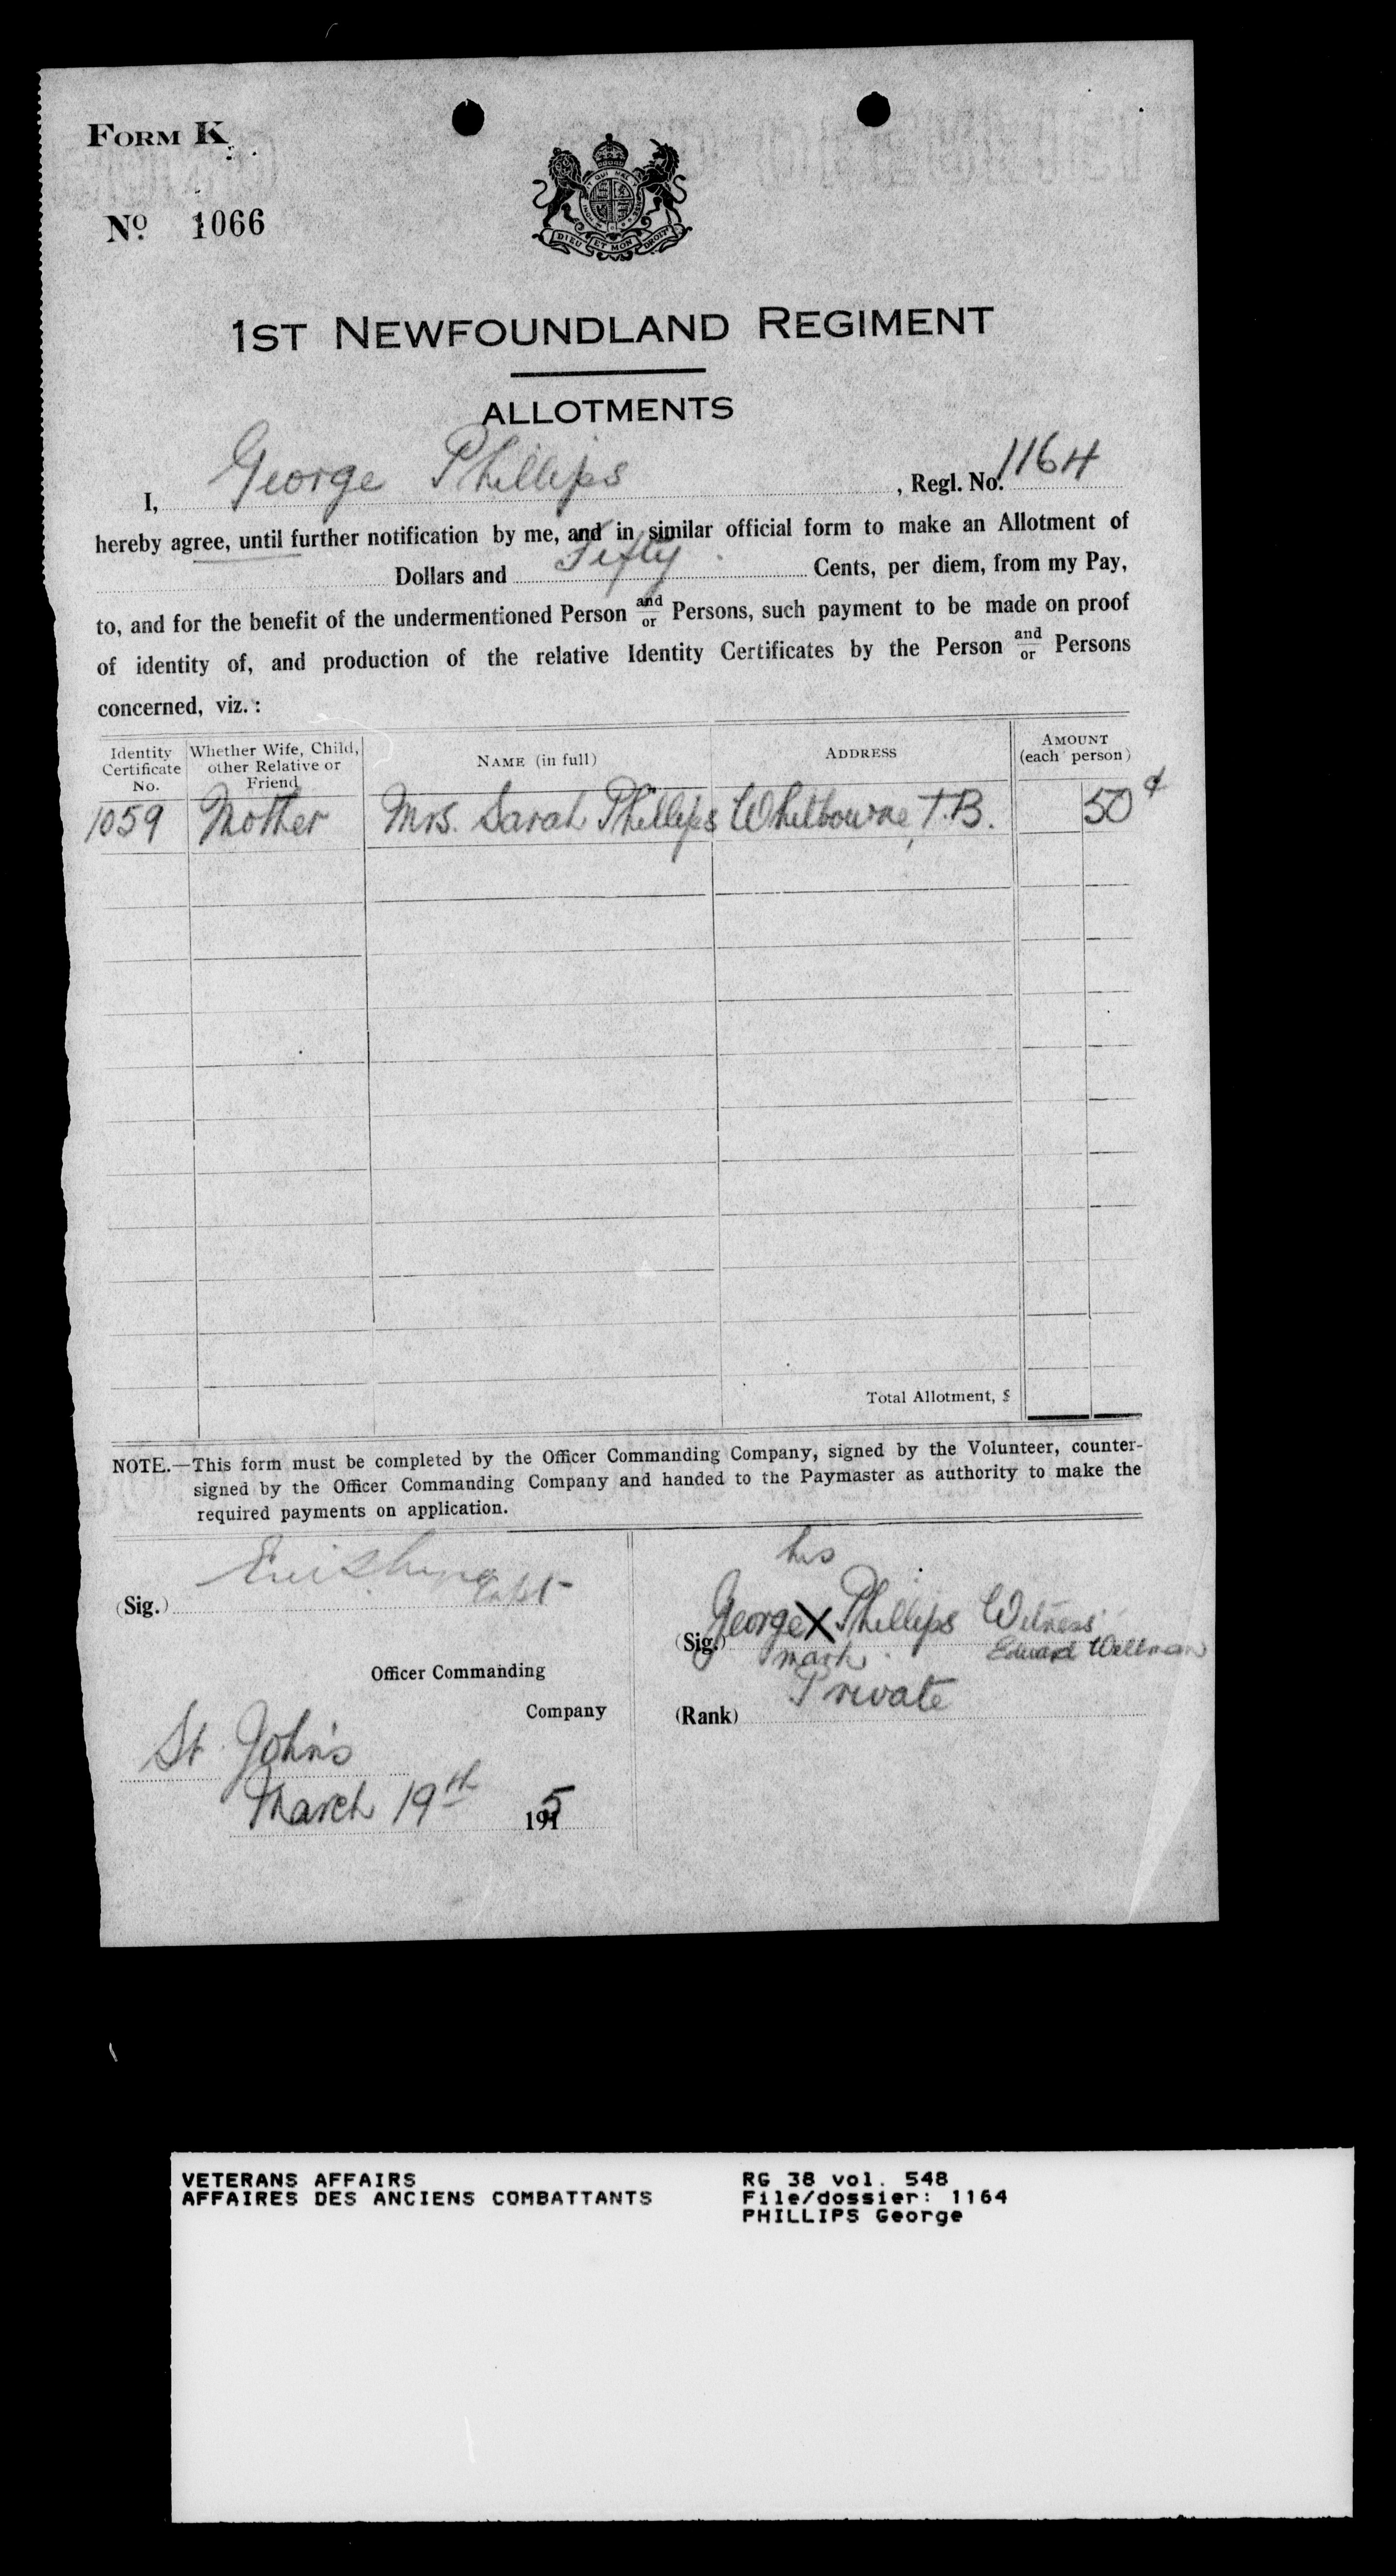 FORM K.
No. 1066
DIEU ET MON DROIT
1ST NEWFOUNDLAND REGIMENT
ALLOTMENTS
I, George Phillips, Regl. No. 1164
hereby agree, until further notification by me, and in similar official form to make an Allotment of
Dollars and Fifty Cents, per diem, from my Pay,
to, and for the benefit of the undermentioned Person and/or Persons, such payment to be made on proof
of identity of, and production of the relative Identity Certificates by the Person and/or Persons
concerned, viz.:
Identity Certificate No. Whether Wife, Child, other Relative or Friend NAME (in full) ADDRESS AMOUNT (each person)
1059 Mother Mrs. Sarah Phillips Whitbourne, T.B. 50¢
Total Allotment, $
NOTE.—This form must be completed by the Officer Commanding Company, signed by the Volunteer, counter-
signed by the Officer Commanding Company and handed to the Paymaster as authority to make the
required payments on application.
(Sig.) Capt
Officer Commanding
Company
St. John's
March 19th 1915
his
(Sig.) George X Phillips Witness
mark Edward Wellman
(Rank) Private
VETERANS AFFAIRS
AFFAIRES DES ANCIENS COMBATTANTS
RG 38 vol. 548
File/dossier: 1164
PHILLIPS George